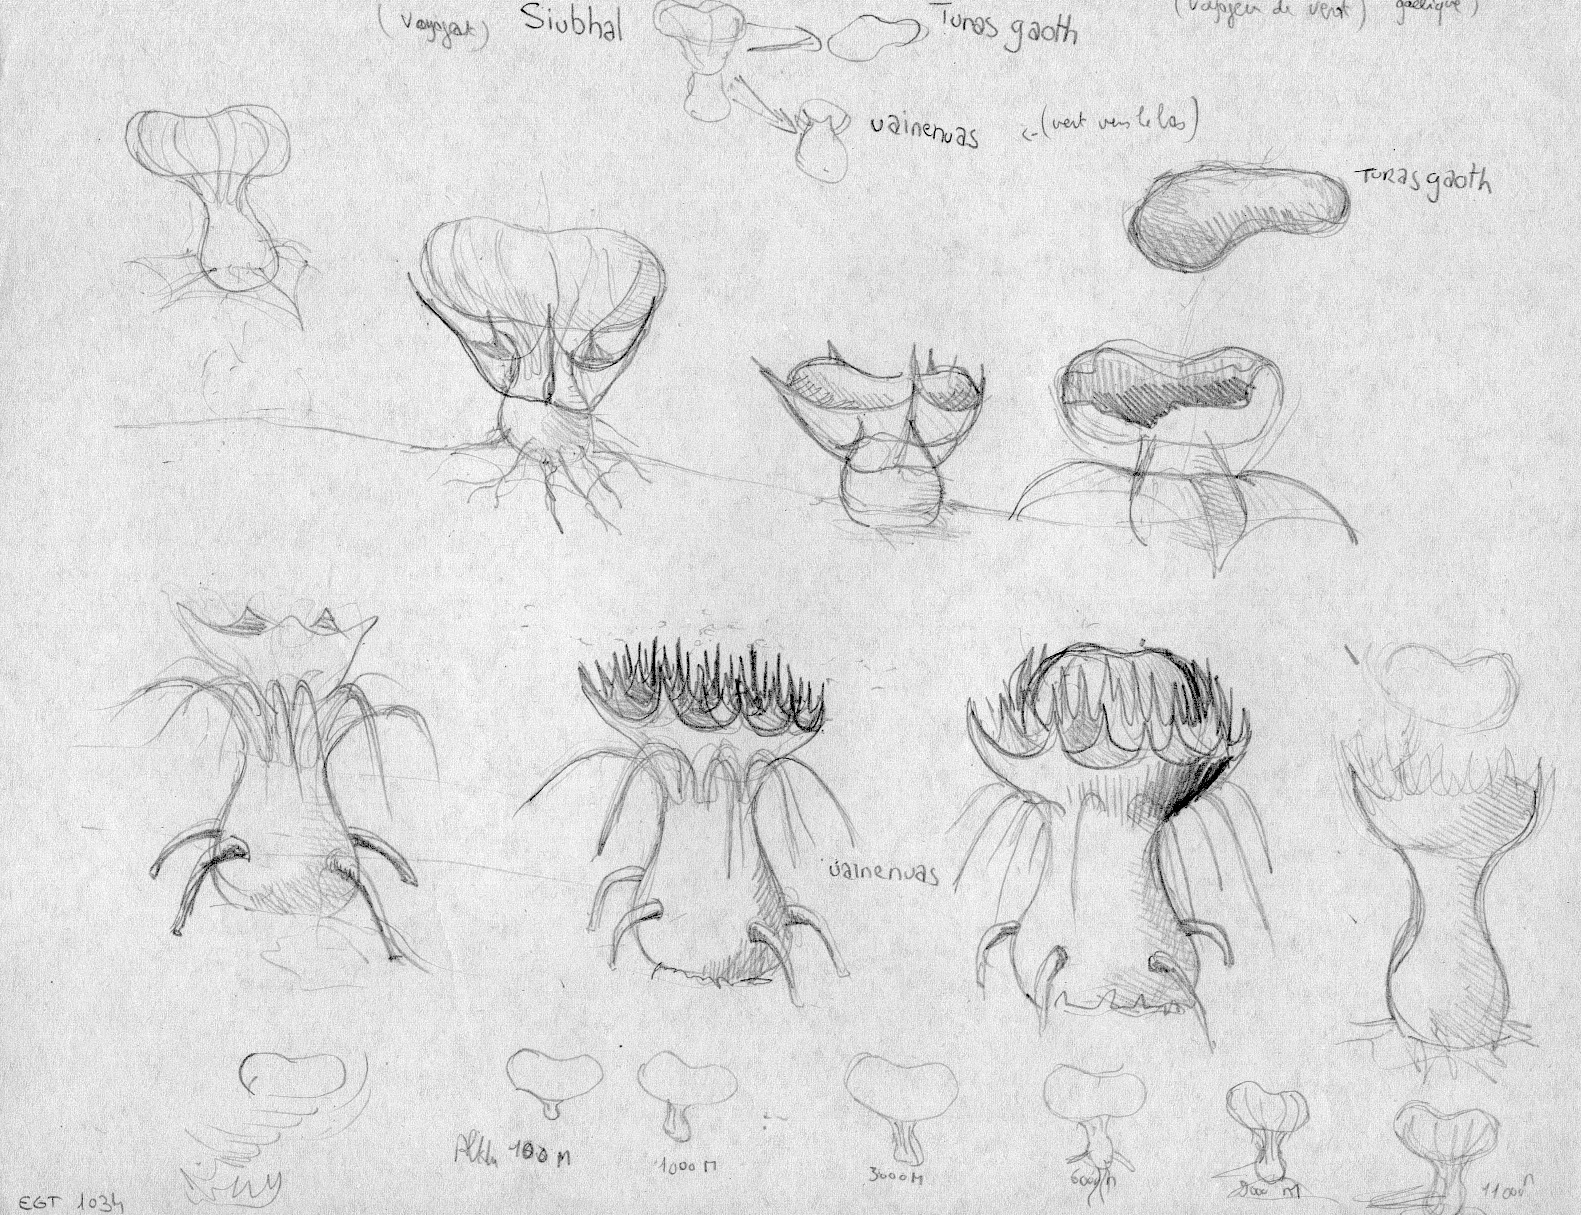 Siubhal
Turas gaoth
(voyageur de vent)
gaélique)
uainenuas
<-(vert vers le bas)
Turas gaoth
uainenuas
100 M
1000 M
3000 M
6000 M
9000 M
11000 M
EGT 1034